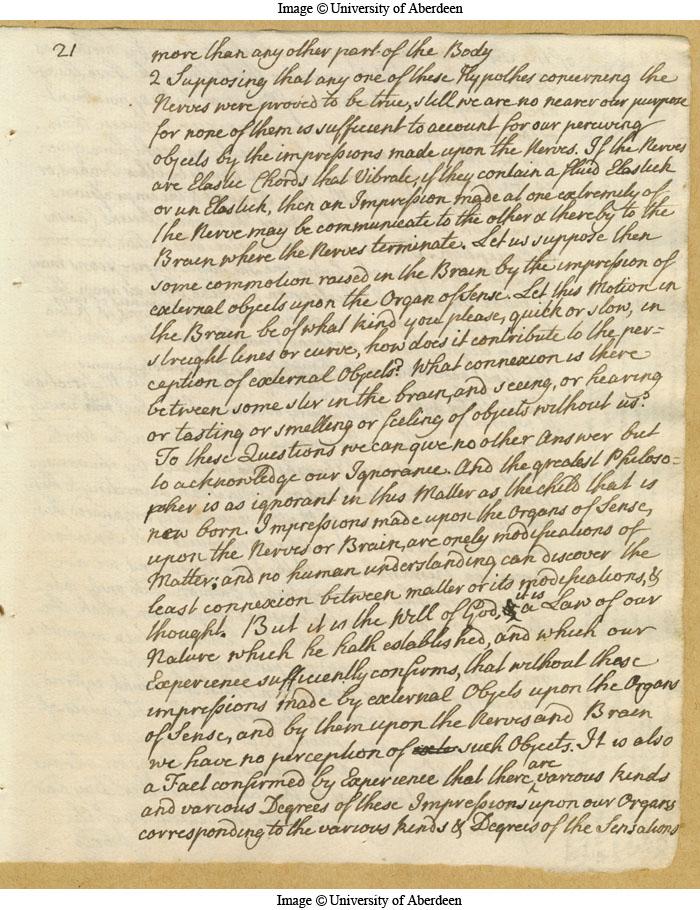 Image © University of Aberdeen
21
more than any other part of the Body
2 Supposing that any one of these Hypothes concerning the
Nerves were proved to be true, still we are no nearer our purpose
for none of them is sufficient to account for our perceiving
objects by the impressions made upon the Nerves. If the Nerves
are Elastic Chords that Vibrate, if they contain a fluid Elastick
or un Elastick, then an Impression made at one extremity of
the Nerve may be communicate to the other & thereby to the
Brain where the Nerves terminate. Let us suppose then
some commotion raised in the Brain by the impression of
external objects upon the Organ of Sense. Let this Motion in
the Brain be of what kind you please, quick or slow, in
streight lines or curve, how does it contribute to the per=
ception of external Objects? What connexion is there
between some stir in the brain, and seeing, or hearing
or tasting or smelling or feeling of objects without us?
To these Questions we can give no other Answer but
to acknowledge our Ignorance. And the greatest Philoso=
pher is as ignorant in this Matter as the child that is
new born. Impressions made upon the Organs of Sense,
upon the Nerves or Brain, are onely modifications of
Matter; and no human understanding can discover the
least connexion between matter or its modifications, &
thought. But it is the Will of God, & it is a Law of our
Nature which he hath established, and which our
Experience sufficiently confirms, that without these
impressions made by external Objects upon the Organs
of Sense, and by them upon the Nerves and Brain
we have no perception of such Objects. It is also
a Fact confirmed by Experience that there are various kinds
and various Degrees of these Impressions upon our Organs
corresponding to the various kinds & Degrees of the Sensations
Image © University of Aberdeen